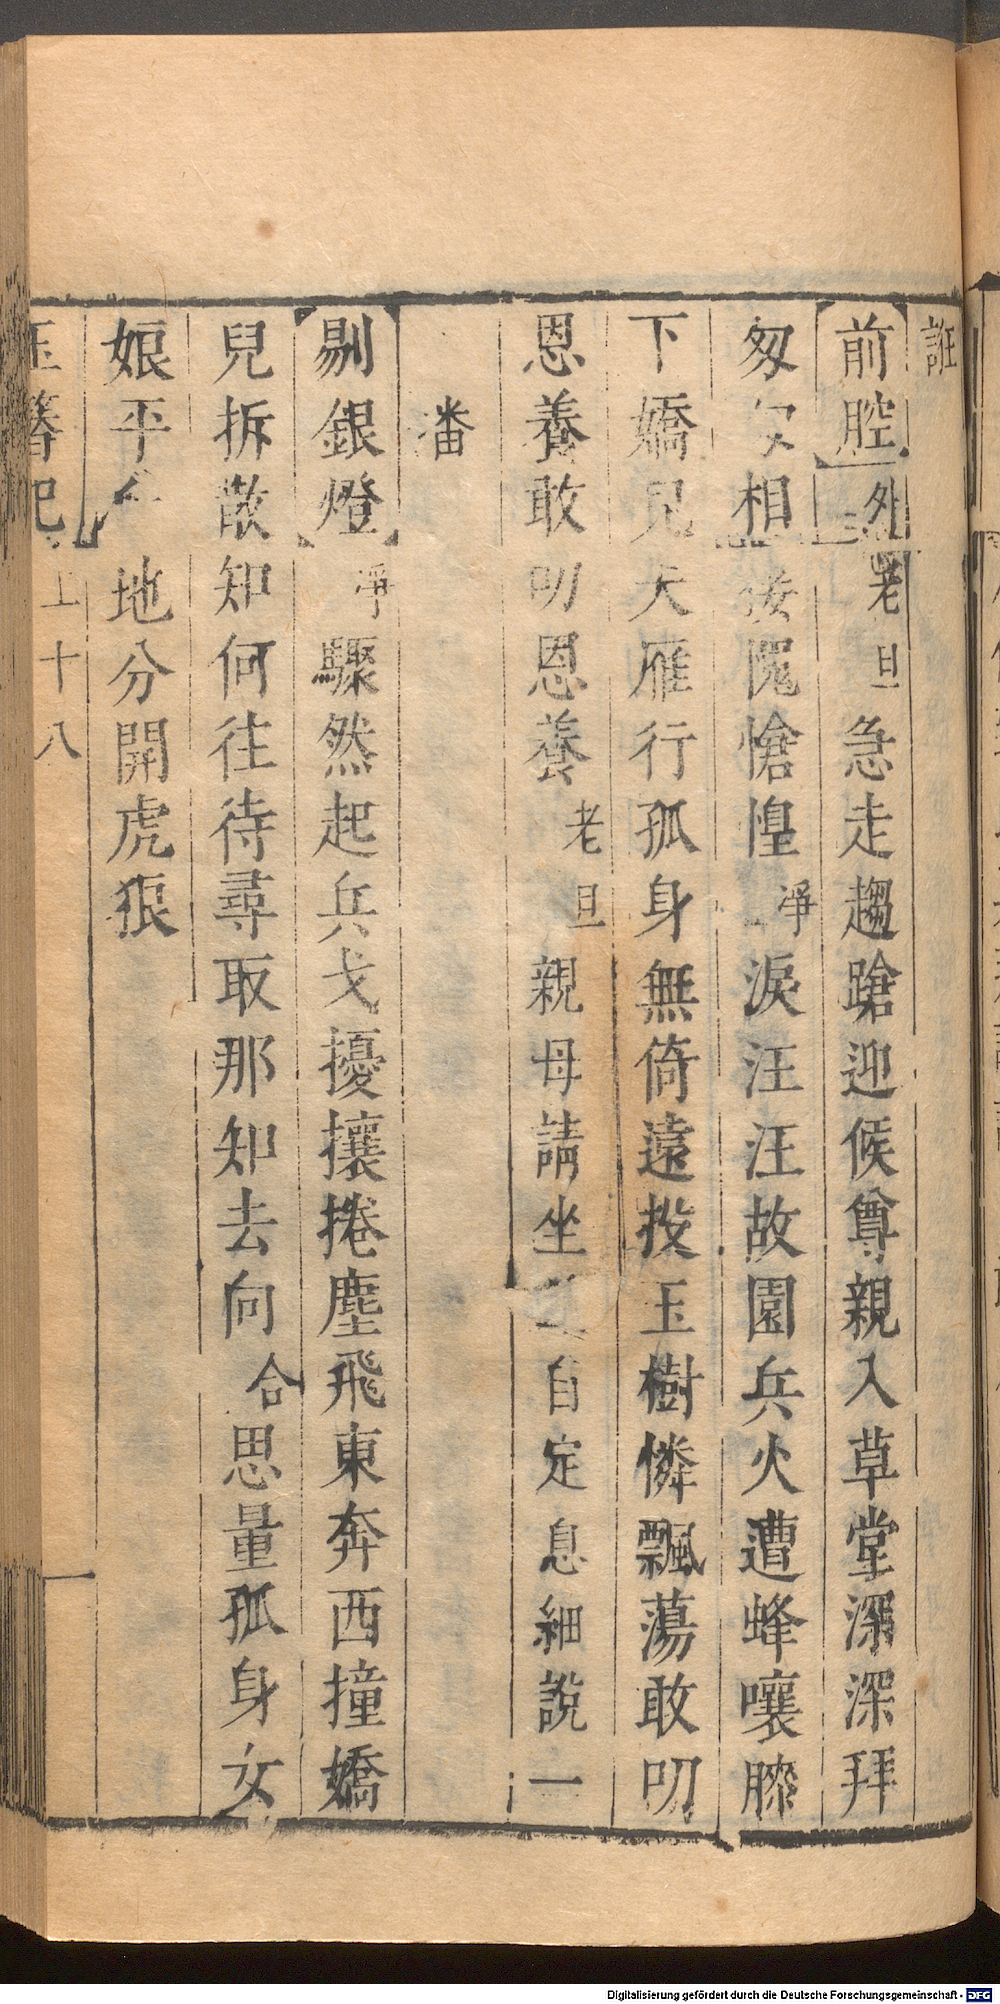 誑
【前腔】外老旦急走趨蹌迎候尊親入草堂深深拜
匆匆相接愧愴惶淨淚汪汪故園兵火遭蜂嚷膝
下嬌兒失雁行孤身無倚遠投玉樹憐飄蕩敢叨
恩養敢叨恩養老旦親母請坐自定息細說一
番
【剔銀燈】淨驟然起兵戈擾攘捲塵飛東奔西撞嬌
兒拆散知何往待尋取那知去向合思量孤身女
娘平地分開虎狼
玉簪記 上 十八
Digitalisierung gefördert durch die Deutsche Forschungsgemeinschaft - DFG